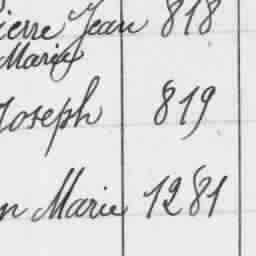 ierre Jean 818
Marie
Joseph 819
n Marie 1281